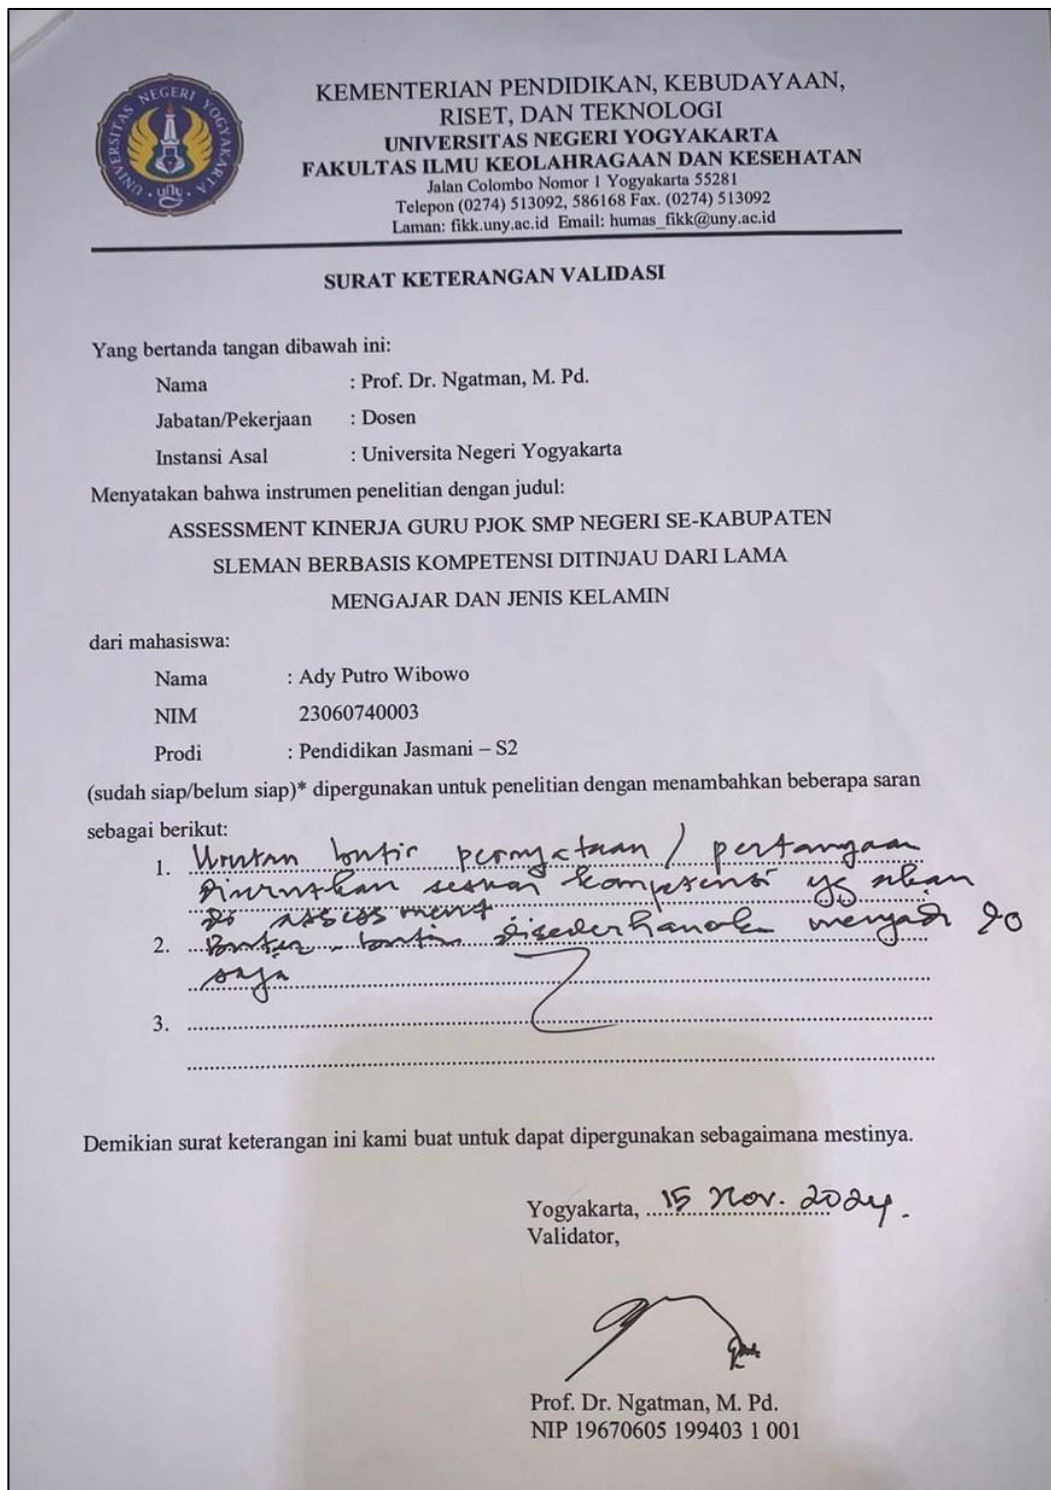 UNIVERSITAS NEGERI YOGYAKARTA
uny
KEMENTERIAN PENDIDIKAN, KEBUDAYAAN,
RISET, DAN TEKNOLOGI
UNIVERSITAS NEGERI YOGYAKARTA
FAKULTAS ILMU KEOLAHRAGAAN DAN KESEHATAN
Jalan Colombo Nomor 1 Yogyakarta 55281
Telepon (0274) 513092, 586168 Fax. (0274) 513092
Laman: fikk.uny.ac.id Email: humas_fikk@uny.ac.id
SURAT KETERANGAN VALIDASI
Yang bertanda tangan dibawah ini:
Nama : Prof. Dr. Ngatman, M. Pd.
Jabatan/Pekerjaan : Dosen
Instansi Asal : Universita Negeri Yogyakarta
Menyatakan bahwa instrumen penelitian dengan judul:
ASSESSMENT KINERJA GURU PJOK SMP NEGERI SE-KABUPATEN
SLEMAN BERBASIS KOMPETENSI DITINJAU DARI LAMA
MENGAJAR DAN JENIS KELAMIN
dari mahasiswa:
Nama : Ady Putro Wibowo
NIM 23060740003
Prodi : Pendidikan Jasmani – S2
(sudah siap/belum siap)* dipergunakan untuk penelitian dengan menambahkan beberapa saran
sebagai berikut:
1. Urutan butir pernyataan / pertanyaan
diurutkan sesuai kompetensi yg akan
di assessment
2. Butir-butir disederhanakan menjadi
saja
3.
Demikian surat keterangan ini kami buat untuk dapat dipergunakan sebagaimana mestinya.
Yogyakarta, 15 Nov. 2024.
Validator,
Prof. Dr. Ngatman, M. Pd.
NIP 19670605 199403 1 001